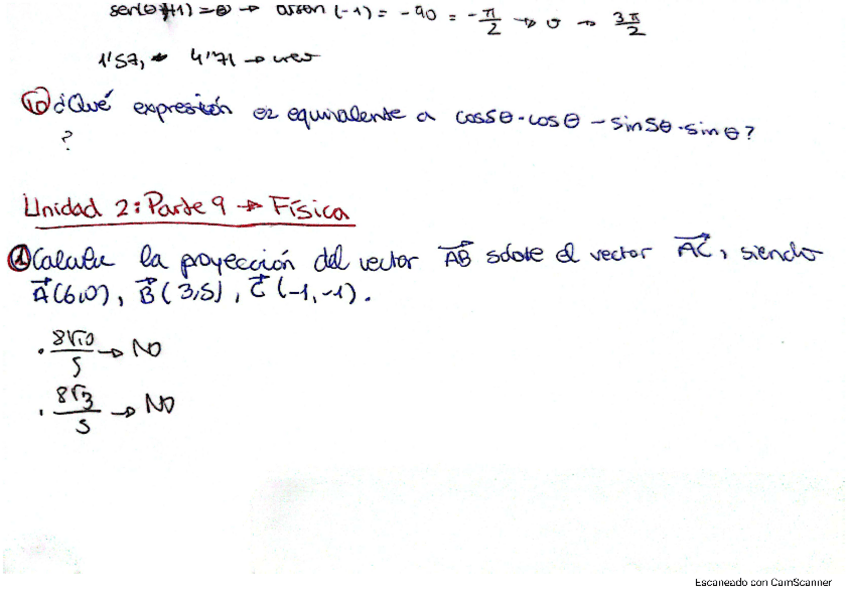 sen(θ+1)=0 → arcsen (-1) = -90 = -π/2 → o → 3π/2
1'57, 4'71 → creo
10 ¿Qué expresión es equivalente a cos5θ·cosθ - sin5θ·sinθ?
Unidad 2: Parte 9 → Física
1 Calcula la proyección del vector AB sobre el vector AC, siendo
A(6,0), B(3,5), C(-1,-1).
· 8√10/5 → NO
· 8√3/5 → NO
Escaneado con CamScanner